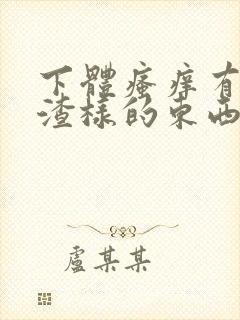 下體瘙痒有
渣樣的東西
盧某某